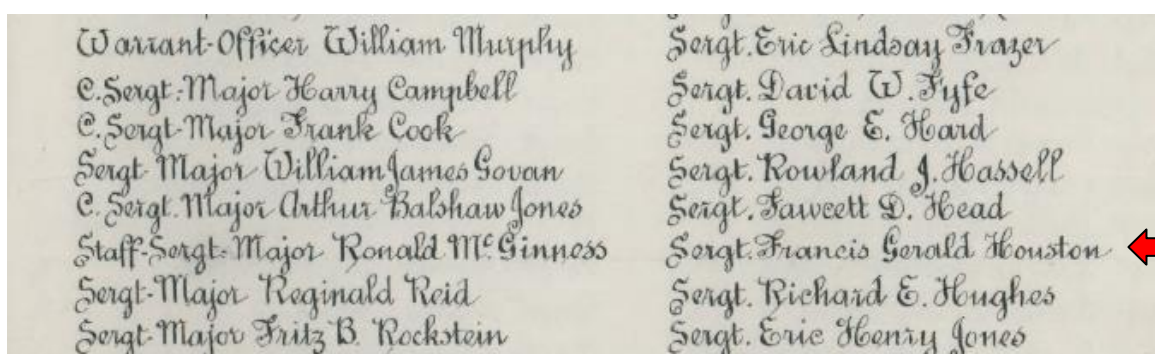 Warrant-Officer William Murphy
C. Sergt.-Major Harry Campbell
C. Sergt-Major Frank Cook
Sergt-Major William James Govan
C. Sergt. Major Arthur Balshaw Jones
Staff-Sergt-Major Ronald McGinness
Sergt-Major Reginald Reid
Sergt-Major Fritz B. Rockstein
Sergt. Eric Lindsay Frazer
Sergt. David W. Fyfe
Sergt. George E. Hard
Sergt. Rowland J. Hassell
Sergt. Fawcett D. Head
Sergt. Francis Gerald Houston
Sergt. Richard E. Hughes
Sergt. Eric Henry Jones